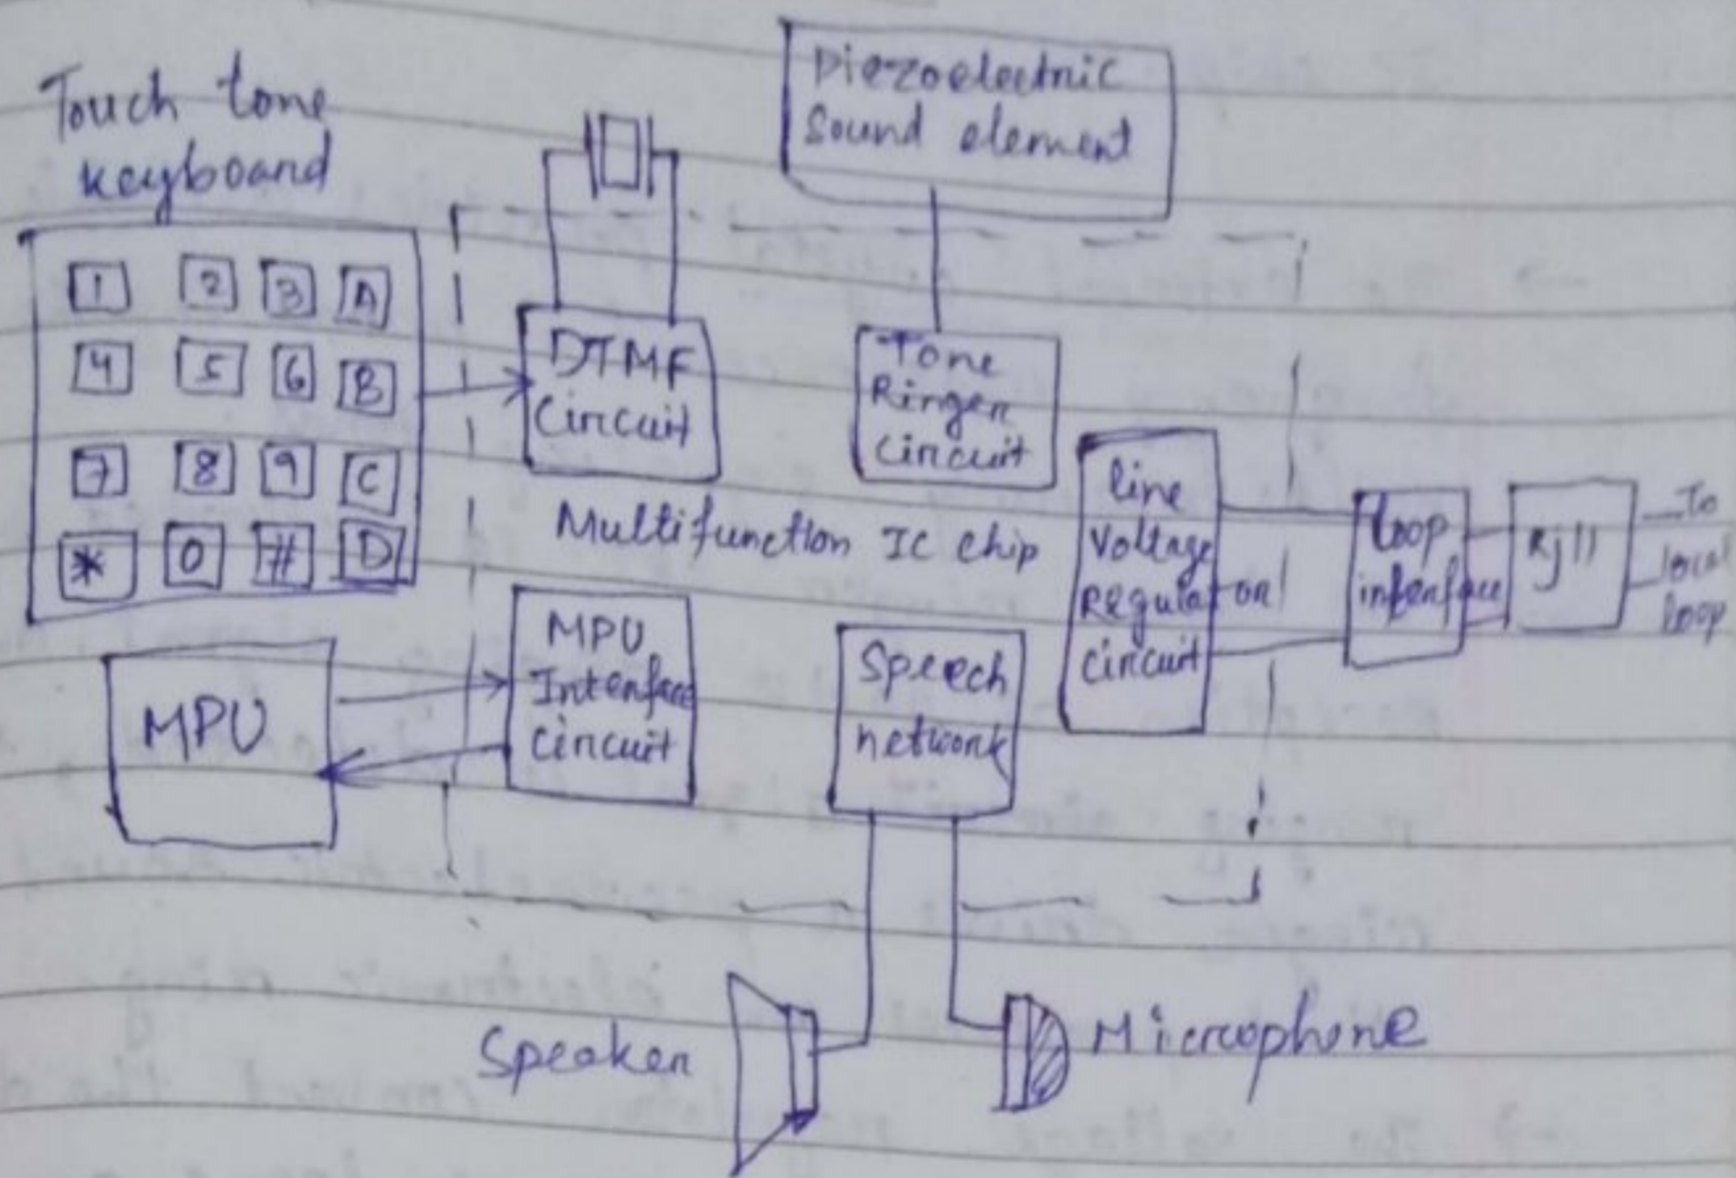 Touch tone
keyboard
1 2 3 A
4 5 6 B
7 8 9 C
* 0 # D
Piezoelectric
Sound element
DTMF
Circuit
Tone
Ringer
Circuit
Multifunction IC chip
line
Voltage
Regulator
Circuit
loop
interface
Rj11
To
local
loop
MPU
MPU
Interface
Circuit
Speech
network
Speaker
Microphone